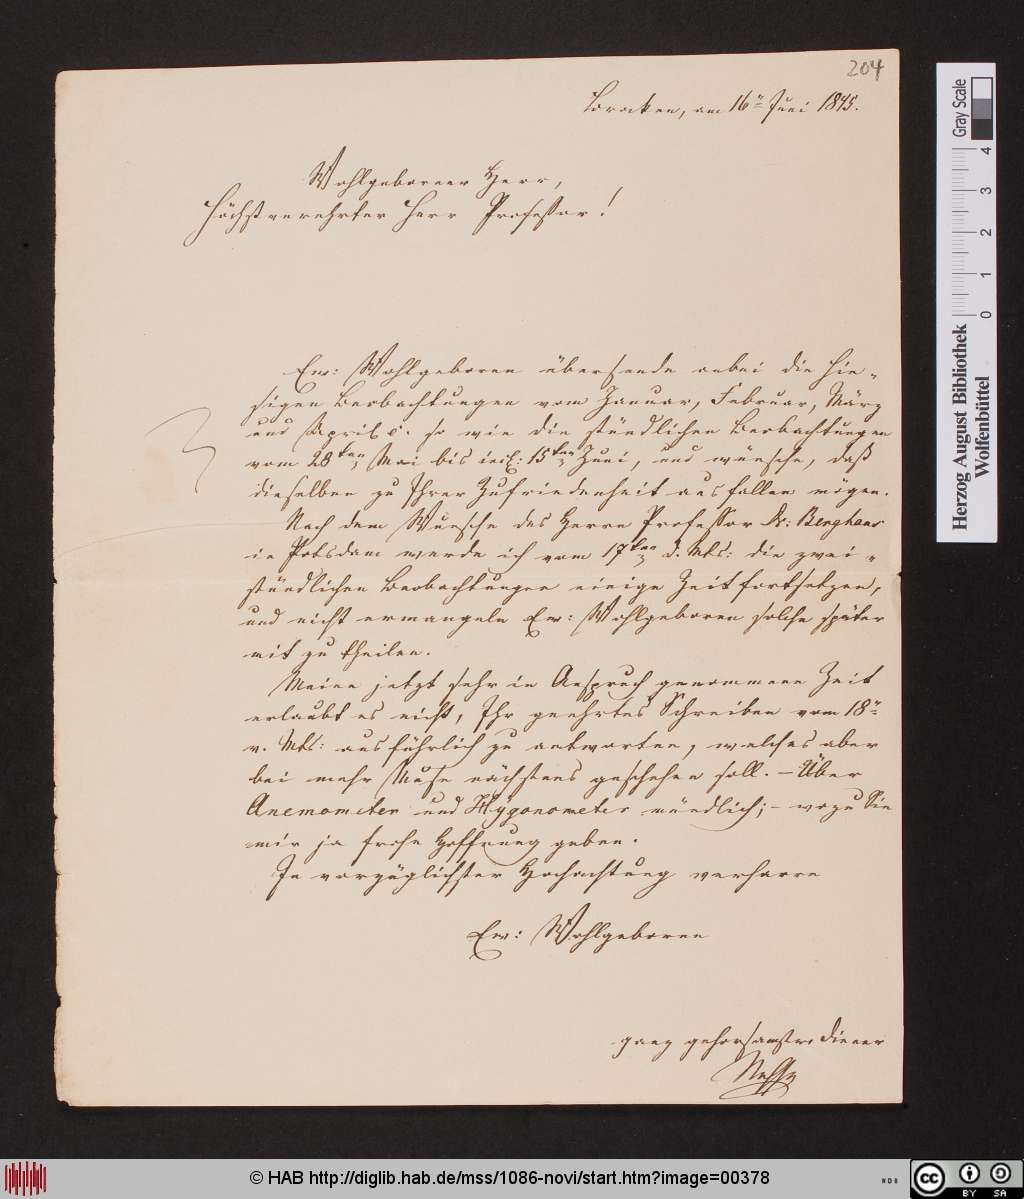 204
Brocken, am 16n Juni 1845.
Wohlgeborner Herr,
Höchstverehrter Herr Professor!
Ew: Wohlgeboren übersende anbei die hie-
sigen Beobachtungen vom Januar, Februar, März
und April c. so wie die stündlichen Beobachtungen
vom 28ten Mai bis incl: 15ten Juni, und wünsche, daß
dieselben zu Ihrer Zufriedenheit ausfallen mögen.
Nach dem Wunsche des Herrn Professor Dr: Berghaus
in Potsdam werde ich vom 17ten d. Mts: die zwei-
stündlichen Beobachtungen einige Zeit fortsetzen,
und nicht ermangeln Ew: Wohlgeboren solche später
mit zu theilen.
Meine jetzt sehr in Anspruch genommene Zeit
erlaubt es nicht, Ihr geehrtes Schreiben vom 18n
v. Mts: ausführlich zu antworten, welches aber
bei mehr Muse nächstens geschehen soll. – Über
Anemometer und Hÿgonometer mündlich; – wozu Sie
mir ja frohe Hoffnung geben.
In vorzüglichster Hochachtung verharre
Ew: Wohlgeboren
ganz gehorsamster Diener
Nehse
Herzog August Bibliothek
Wolfenbüttel
0 1 2 3 4
Gray Scale
© HAB http://diglib.hab.de/mss/1086-novi/start.htm?image=00378
cc BY SA